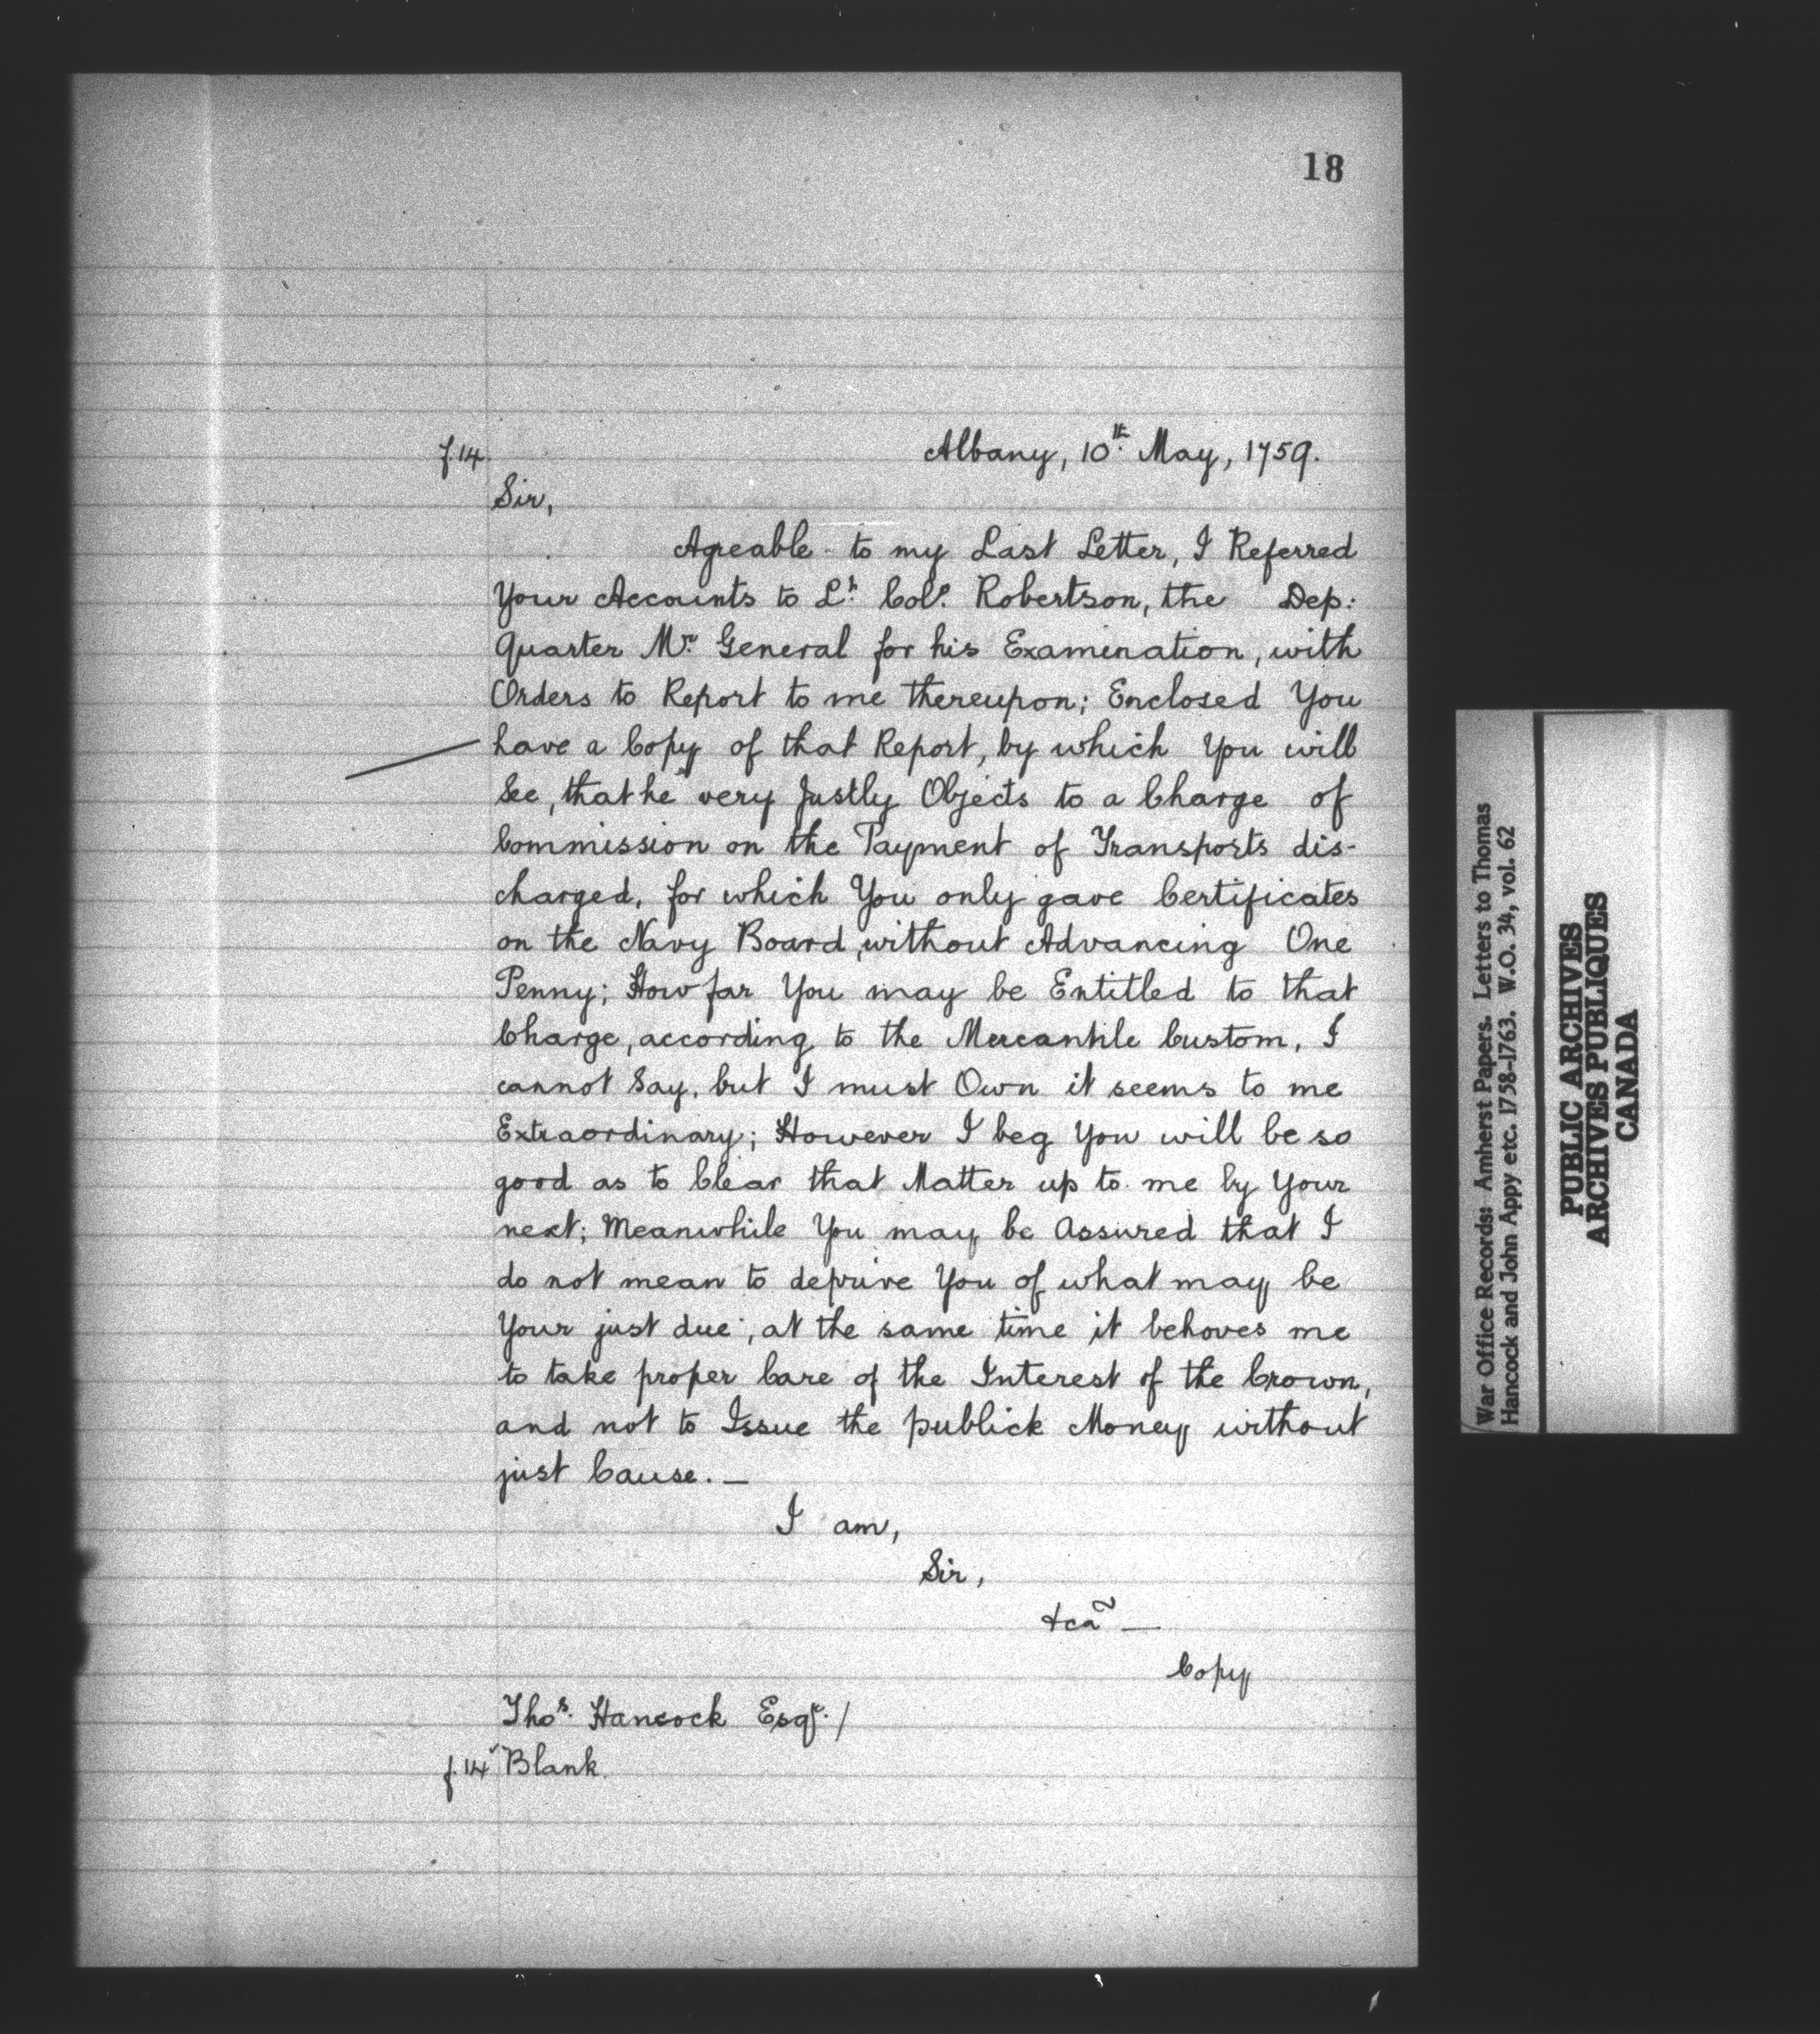 18
f.14. Albany, 10th. May, 1759.
Sir,
Agreable to my Last Letter, I Referred
Your Accounts to Lt. Col. Robertson, the Dep:
Quarter Mr. General for his Examination, with
Orders to Report to me thereupon; Enclosed You
have a Copy of that Report, by which You will
See, that he very Justly Objects to a Charge of
Commission on the Payment of Transports dis-
charged, for which You only gave Certificates
on the Navy Board, without Advancing One
Penny; How far You may be Entitled to that
Charge, according to the Mercantile Custom, I
cannot Say, but I must Own it seems to me
Extraordinary; However I beg You will be so
good as to Clear that Matter up to me by Your
next; Meanwhile You may be Assured that I
do not mean to deprive You of what may be
Your just due, at the same time it behoves me
to take proper Care of the Interest of the Crown,
and not to Issue the publick Money without
just Cause. —
I am,
Sir,
&ca~ —
Copy
Thos. Hancock Esqr. /
f.14v Blank.
War Office Records: Amherst Papers. Letters to Thomas
Hancock and John Appy etc. 1758-1763. W.O. 34, vol. 62
PUBLIC ARCHIVES
ARCHIVES PUBLIQUES
CANADA